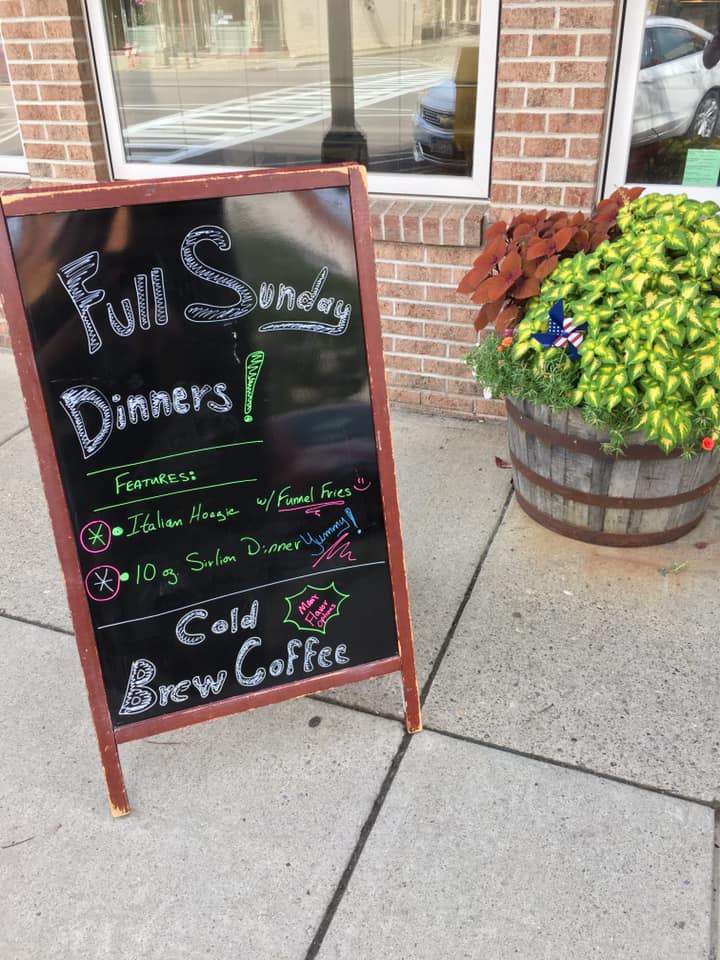 Full Sunday
Dinners!
FEATURES:
Italian Hoagie w/ Funnel Fries
10 oz Sirlion Dinner Yummy!
Many
Flavor
Options
Cold
Brew Coffee